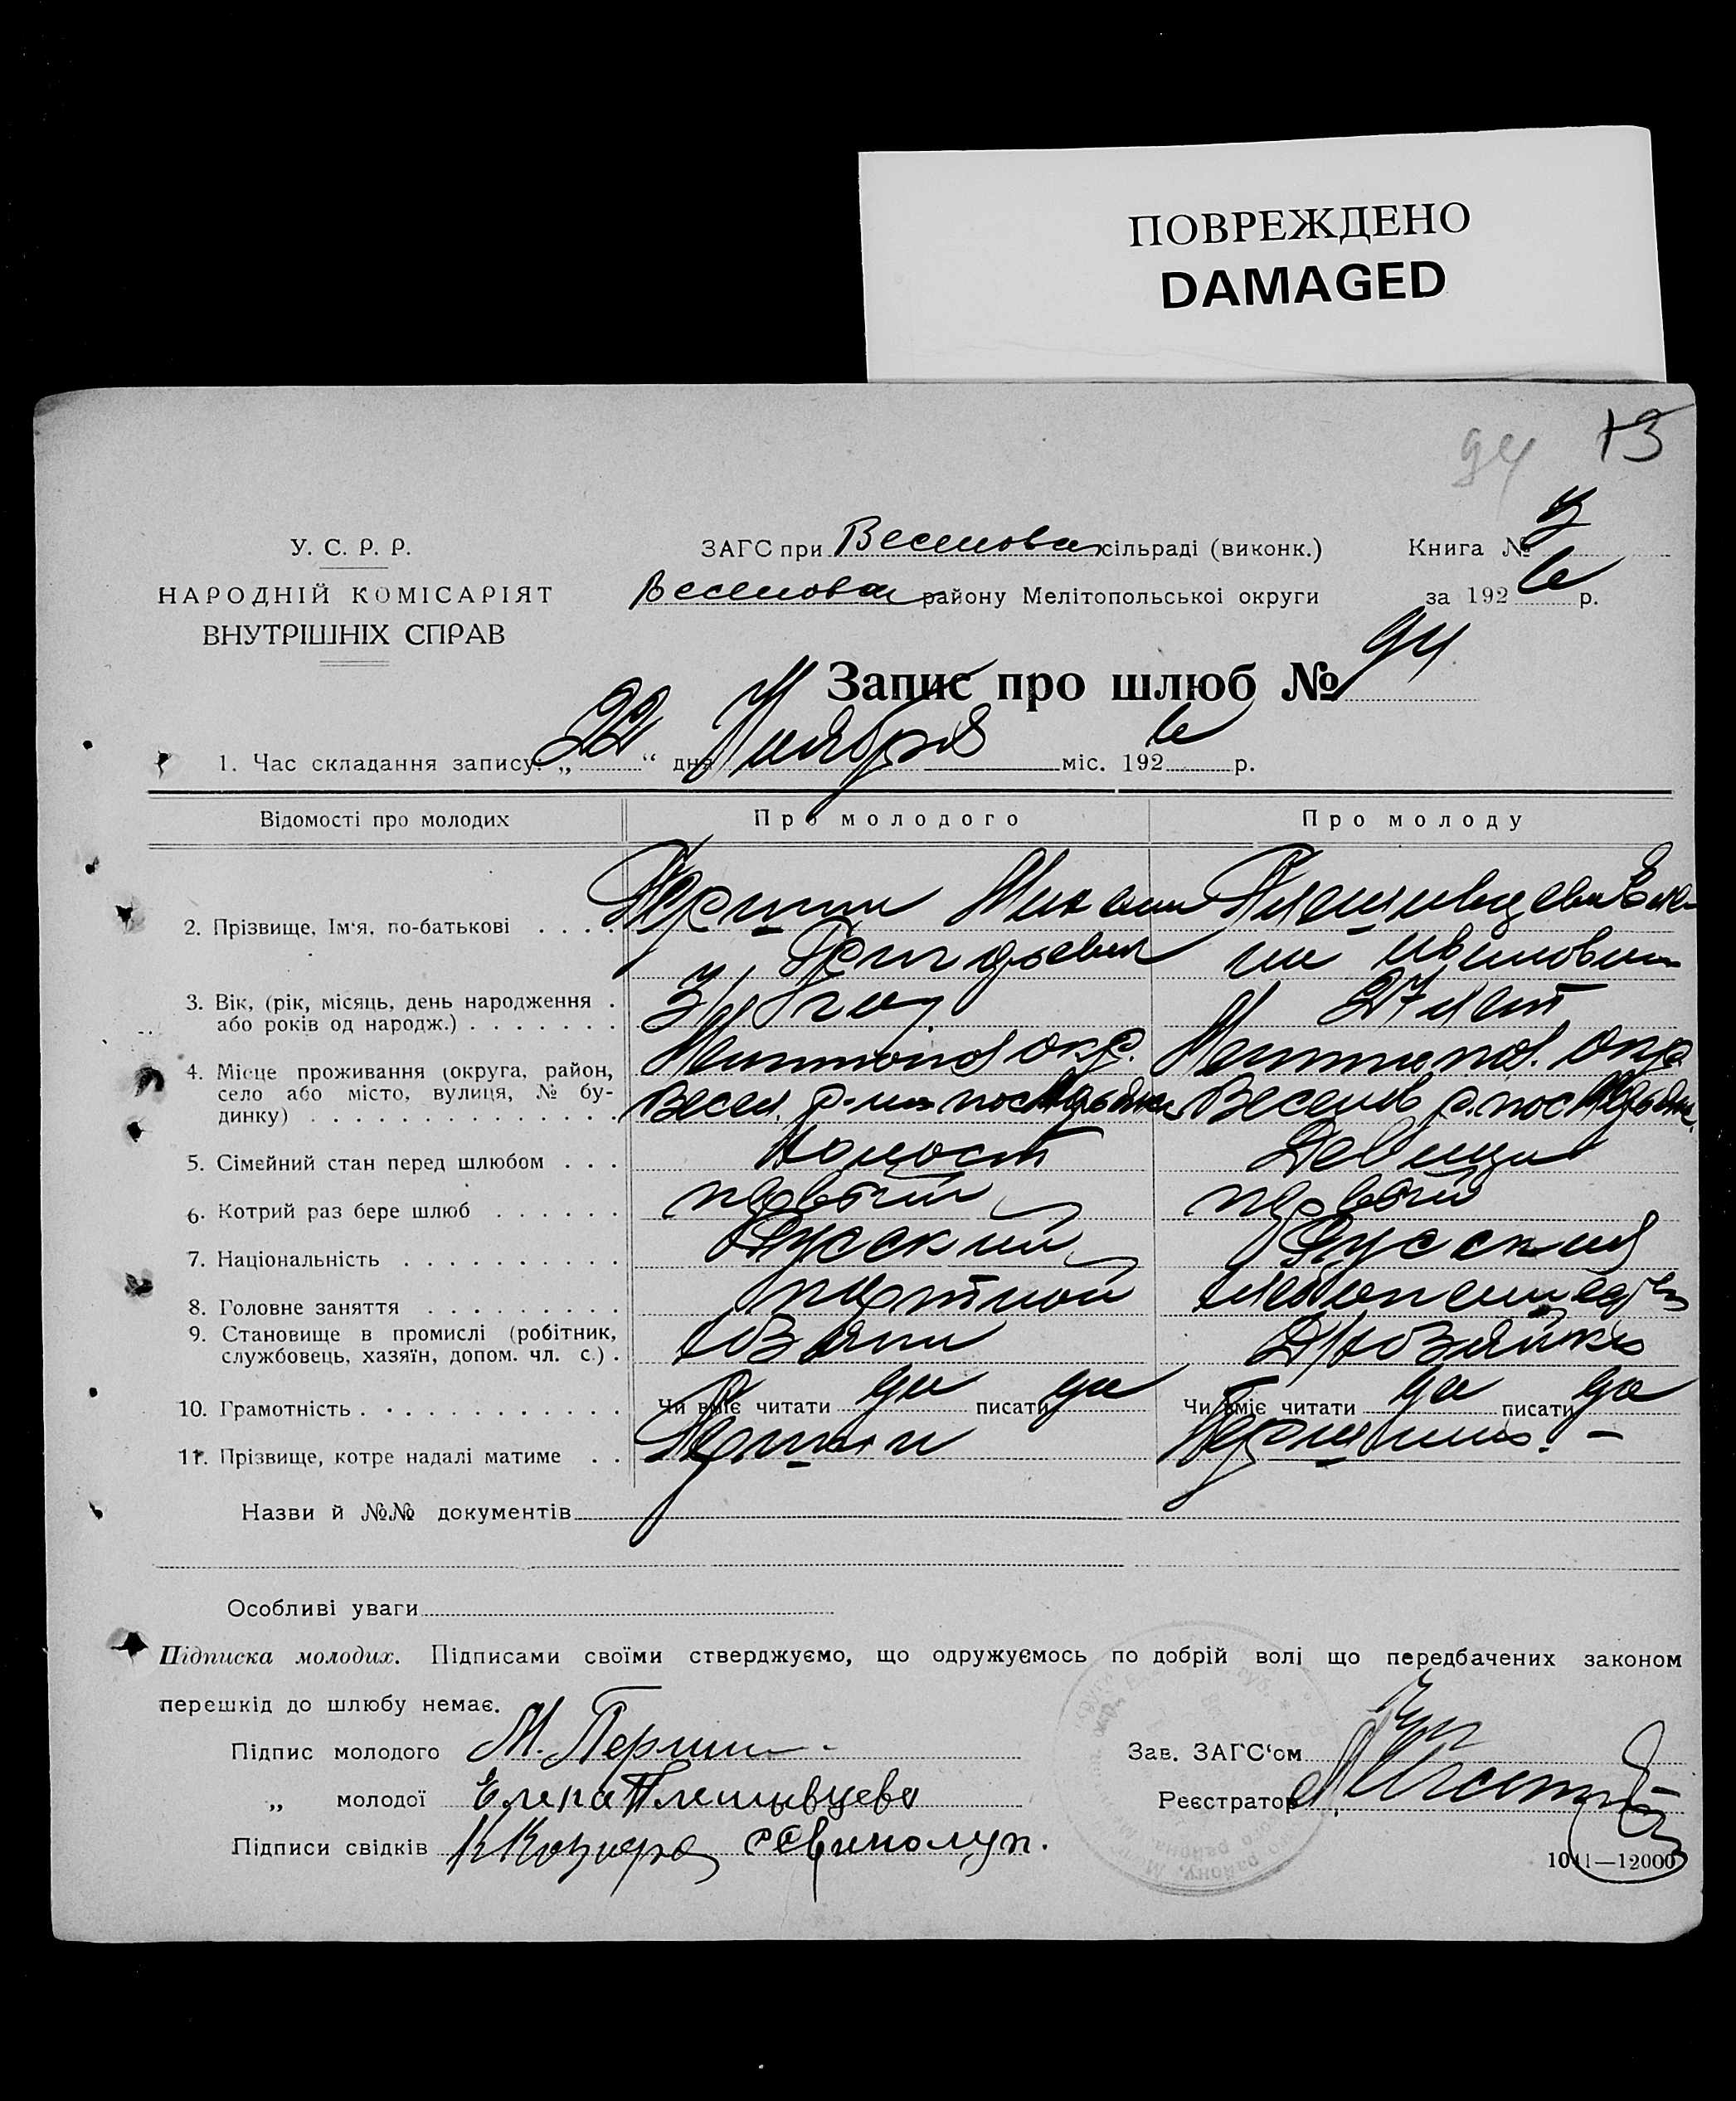 ПОВРЕЖДЕНО
DAMAGED
94 13
У. С. Р. Р.
НАРОДНІЙ КОМІСАРІЯТ
ВНУТРІШНІХ СПРАВ
ЗАГС при Веселовск сільраді (виконк.) Книга № 3
Веселовск району Мелітопольської округи за 1926 р.
Запис про шлюб № 94
1. Час складання запису: „22“ дня Ноября міс. 1926 р.
Відомості про молодих Про молодого Про молоду
2. Прізвище, Ім‘я, по-батькові . . . . Першин Михаил Плешивцева Еле-
на Ивановна
3. Вік, (рік, місяць, день народження .
або років од народж.) . . . . . . . год 27 лет
4. Місце проживання (округа, район, Мелитопол окр. Мелитопол. окр
село або місто, вулиця, № бу- Весел. р-на пос Веселов р. пос
динку) . . . . . . . . . . . . . .
5. Сімейний стан перед шлюбом . . . Холост Девица
6. Котрий раз бере шлюб . . . . . . первый первый
7. Національність . . . . . . . . . . Русский Русская
8. Головне заняття . . . . . . . . . портной хлебопашество
9. Становище в промислі (робітник,
службовець, хазяїн, допом. чл. с.) . хозяин Д/хозяйка
10. Грамотність . . . . . . . . . . . . Чи вміє читати да писати да Чи вміє читати да писати да
11. Прізвище, котре надалі матиме . . Першин Першина. —
Назви й №№ документів
Особливі уваги
Підписка молодих. Підписами своїми стверджуємо, що одружуємось по добрій волі що передбачених законом
перешкід до шлюбу немає.
Підпис молодого М. Першин Зав. ЗАГС‘ом
„ молодої Елена Плешывцева Реєстратор
Підписи свідків
1041—12000